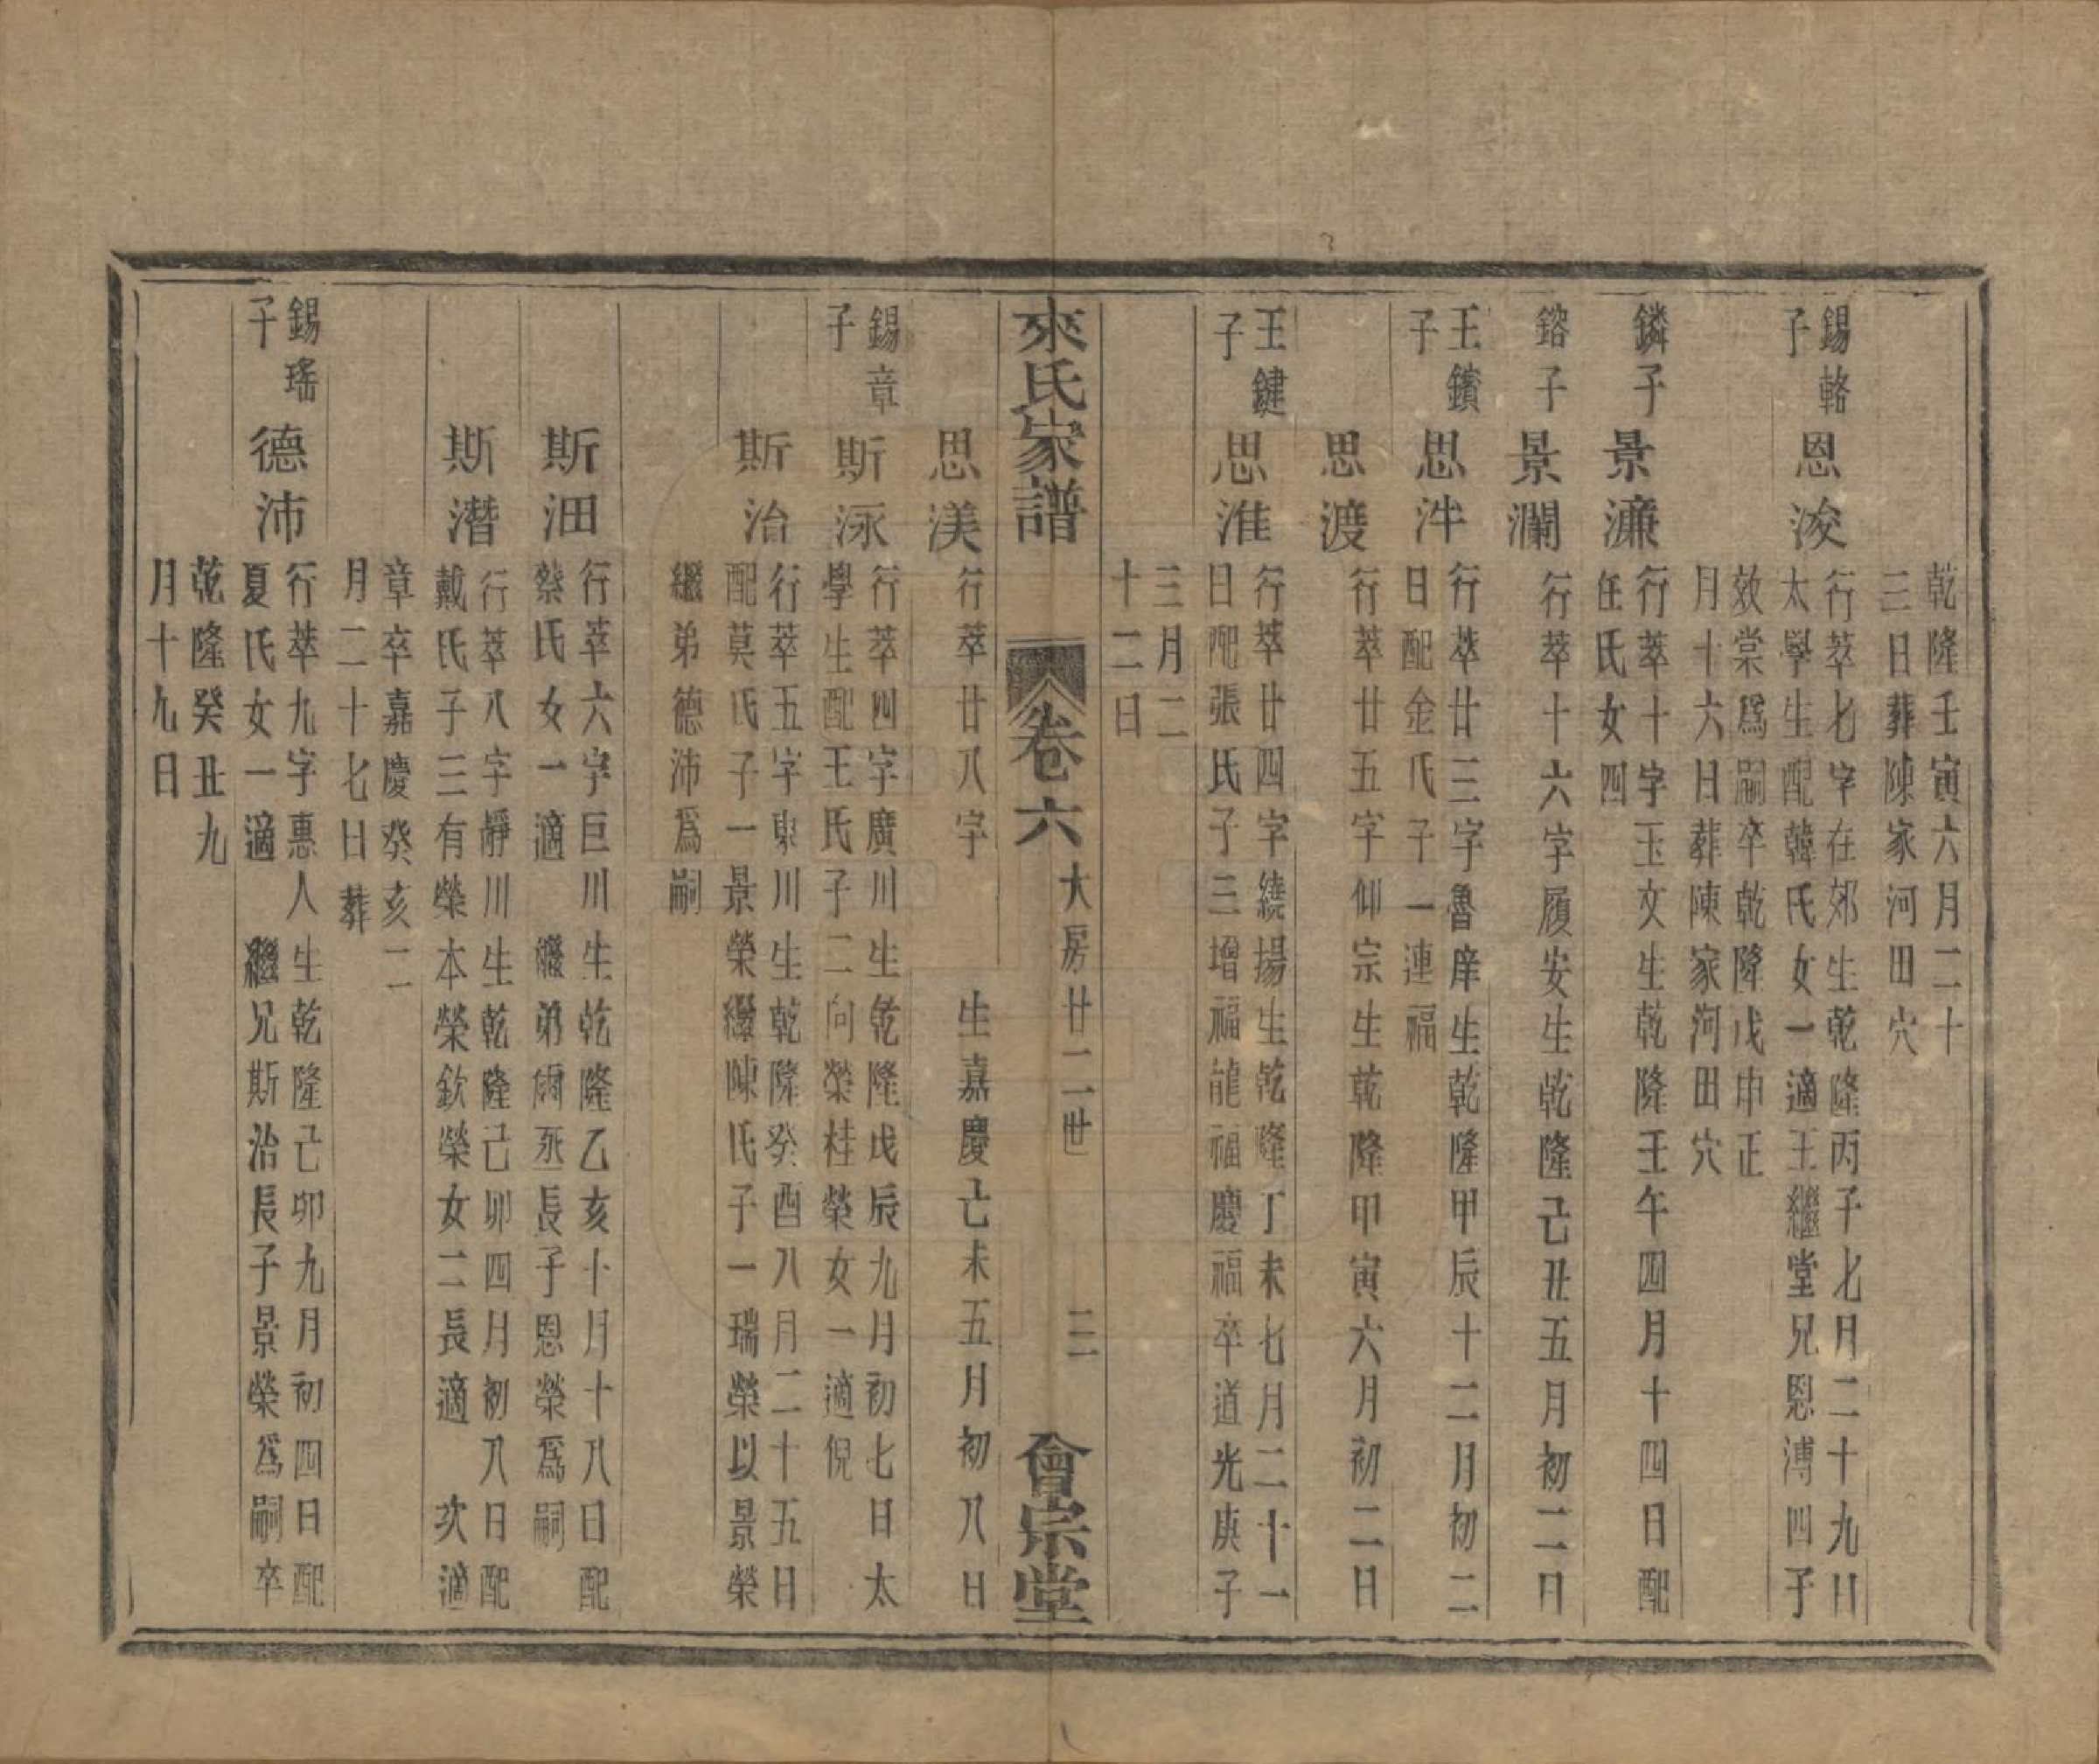 乾隆壬寅六月二十
三日葬陳家河田穴
錫輅
子
恩浚
行萃七字在郊生乾隆丙子七月二十九日
太學生配韓氏女一適王繼堂兄恩溥四子
效棠爲嗣卒乾隆戊申正
月十六日葬陳家河田穴
鏻子
景濂
行萃十字玉文生乾隆壬午四月十四日配
任氏女四
鎔子
景瀾
行萃十六字履安生乾隆己丑五月初二日
王鑌
子
思泮
行萃廿三字魯庠生乾隆甲辰十二月初二
日配金氏子一連福
思渡
行萃廿五字仰宗生乾隆甲寅六月初二日
王鍵
子
思淮
行萃廿四字繞揚生乾隆丁未七月二十一
日配張氏子三增福龍福慶福卒道光庚子
三月二
十二日
來氏家譜
卷六
大房廿二世
二
會宗堂
思渼
行萃廿八字 生嘉慶己未五月初八日
錫章
子
斯泳
行萃四字廣川生乾隆戊辰九月初七日太
學生配王氏子二向榮桂榮女一適倪
斯治
行萃五字東川生乾隆癸酉八月二十五日
配莫氏子一景榮繼陳氏子一瑞榮以景榮
繼弟德沛爲嗣
斯沺
行萃六字巨川生乾隆乙亥十月十八日配
蔡氏女一適 繼弟爾丕長子恩榮爲嗣
斯潛
行萃八字靜川生乾隆己卯四月初八日配
戴氏子三有榮本榮欽榮女二長適 次適
章卒嘉慶癸亥二
月二十七日葬
錫瑤
子
德沛
行萃九字惠人生乾隆己卯九月初四日配
夏氏女一適 繼兄斯治長子景榮爲嗣卒
乾隆癸丑九
月十九日